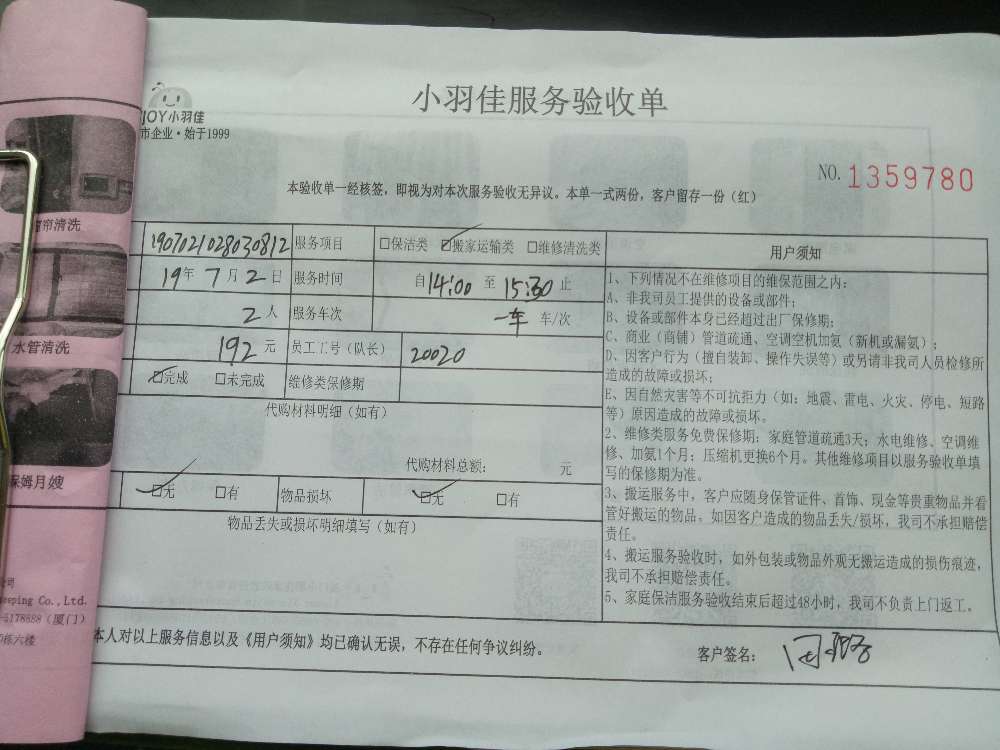 小羽佳服务验收单
JOY小羽佳
市企业·始于1999
NO. 1359780
本验收单一经核签,即视为对本次服务验收无异议。本单一式两份,客户留存一份(红)
1907021028030812 服务项目 □保洁类 ☑搬家运输类 □维修清洗类
19年7月2日 服务时间 自14:00 至 15:30 止
2人 服务车次 一车 车/次
192元 员工工号(队长) 20020
☑完成 □未完成 维修类保修期
代购材料明细(如有)
代购材料总额: 元
☑无 □有 物品损坏 ☑无 □有
物品丢失或损坏明细填写(如有)
用户须知
1、下列情况不在维修项目的维保范围之内:
A、非我司员工提供的设备或部件;
B、设备或部件本身已经超过出厂保修期;
C、商业(商铺)管道疏通、空调空机加氨(新机或漏氨);
D、因客户行为(擅自装卸、操作失误等)或另请非我司人员检修所
造成的故障或损坏;
E、因自然灾害等不可抗拒力(如:地震、雷电、火灾、停电、短路
等)原因造成的故障或损坏。
2、维修类服务免费保修期:家庭管道疏通3天;水电维修、空调维
修、加氨1个月;压缩机更换6个月。其他维修项目以服务验收单填
写的保修期为准。
3、搬运服务中,客户应随身保管证件、首饰、现金等贵重物品并看
管好搬运的物品。如因客户造成的物品丢失/损坏,我司不承担赔偿
责任。
4、搬运服务验收时,如外包装或物品外观无搬运造成的损伤痕迹,
我司不承担赔偿责任。
5、家庭保洁服务验收结束后超过48小时,我司不负责上门返工。
本人对以上服务信息以及《用户须知》均已确认无误,不存在任何争议纠纷。
客户签名:
窗帘清洗
水管清洗
保姆月嫂
公司
eeping Co.,Ltd.
-5178888(厦门)
栋六楼